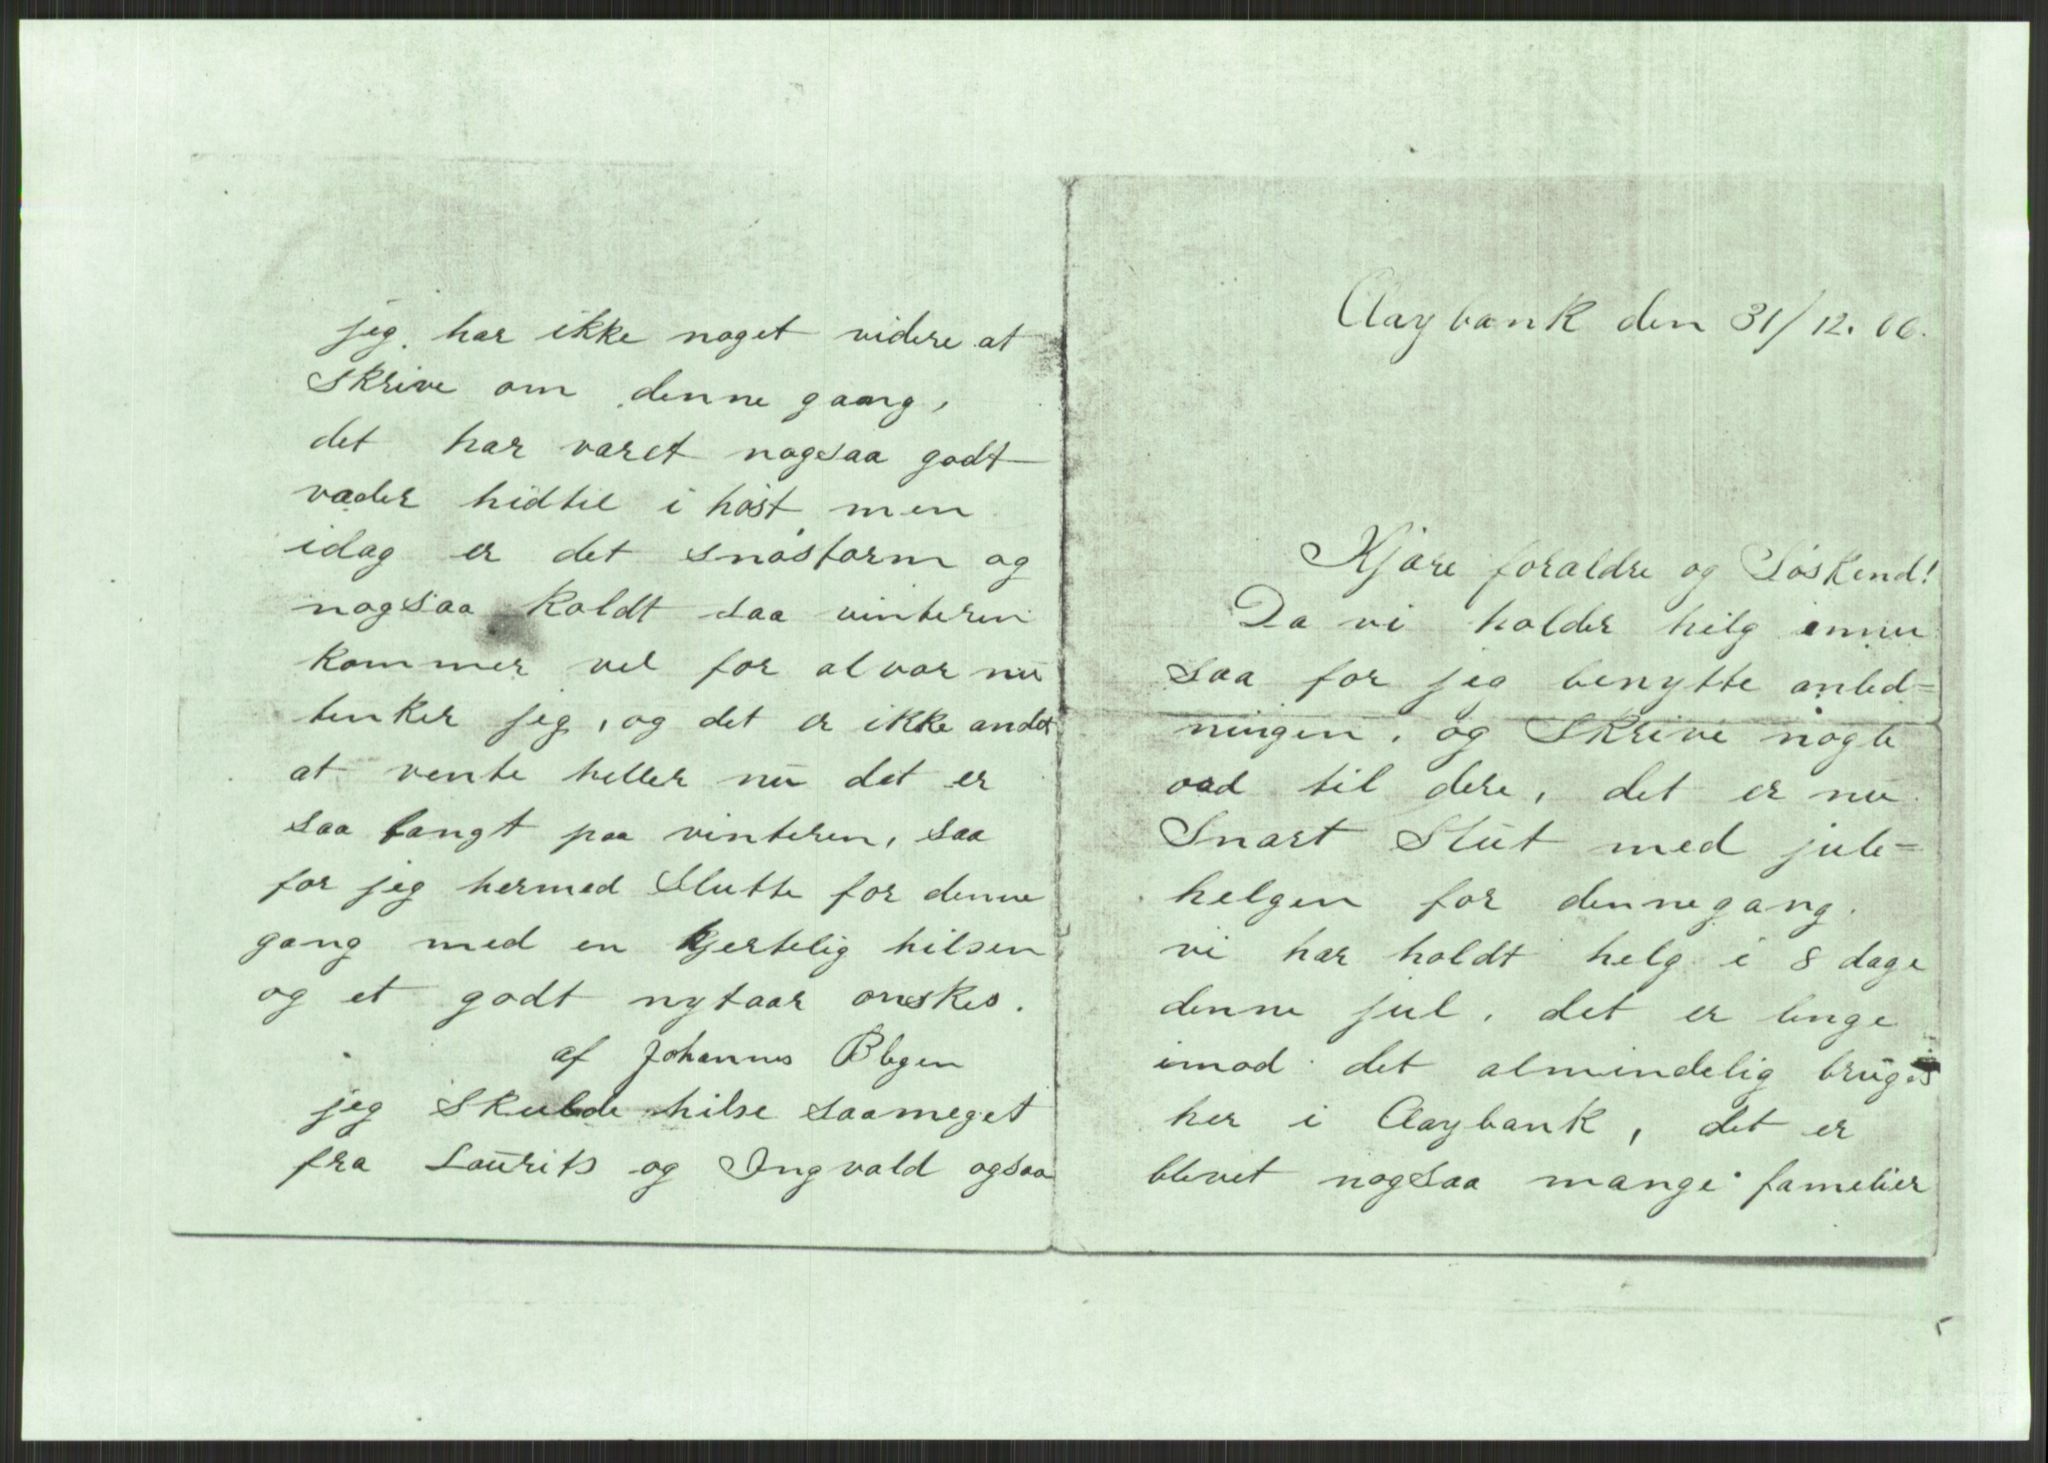 jeg har ikke noget videre at
Skrive om denne gaang,
det har varet nogsaa godt
vader hidtil i høst men
idag er det snøstorm og
nogsaa Koldt saa vinteren
kommer vel for alvor nu
tenker jeg, og det er ikke andet
at vente heller nu det er
saa langt paa vinteren, saa
for jeg hermed Slutte for denne
gang med en kjertelig hilsen
og et godt nytaar onskes.
af Johannes
jeg Skulde hilse saameget
fra Laurits og Ingvald ogsaa
Claybank den 31/12. 06.
Kjære foraldre og Søskend!
Da vi holder helg ennu
saa for jeg benytte anled=
ningen, og Skrive nogle
ord til dere, det er nu
Snart Slut med jule=
helgen for denne gang.
vi har holdt helg i 8 dage
denne jul, det er lenge
imod det almindelig bruges
her i Claybank, det er
blevet nogsaa mange famelier